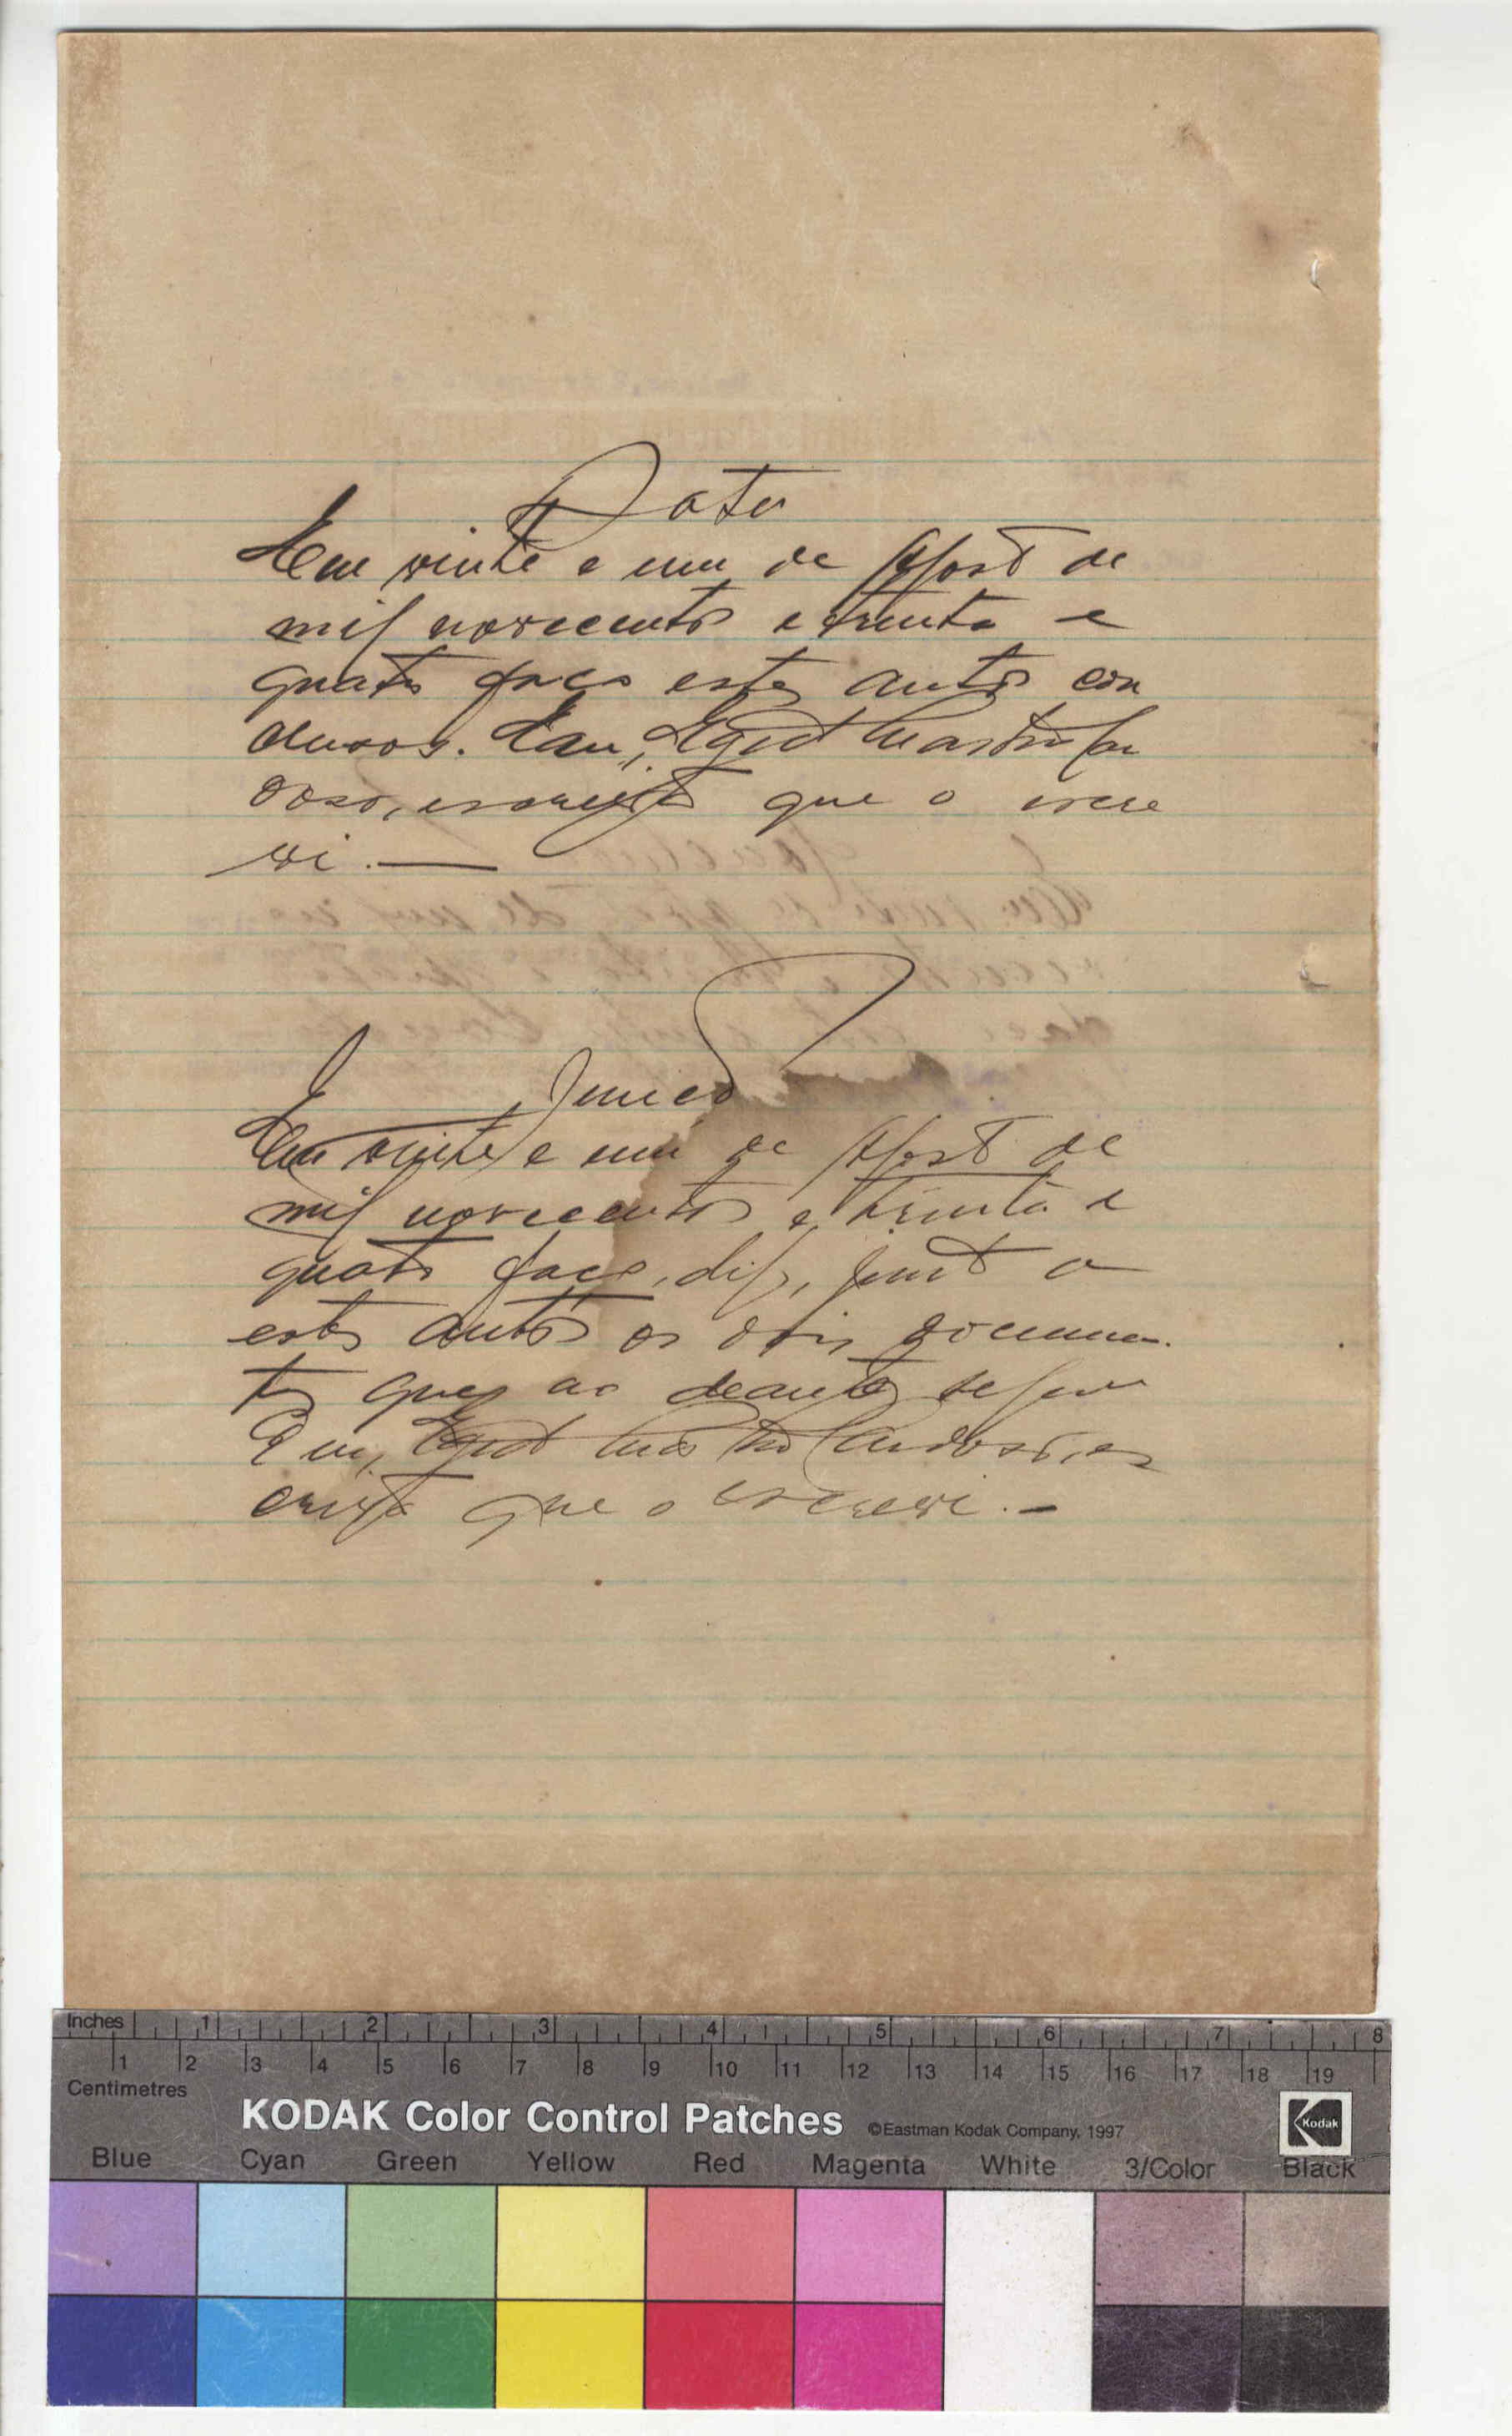 Data
Em vinte e um de Agosto de
mil novecentos e trinta e
quatro faço estes autos con
clusos. Eu, Egisto
doso, escrivão que o escre
vi. —
Juncção
Em vinte e um de Agosto de
mil novecentos e trinta e
quatro faço, digo, junto a
estes autos os dois documen-
tos que ao deante se
Eu, Cardoso, es
crivão que o escrevi. —
Inches 1 2 3 4 5 6 7 8
1 2 3 4 5 6 7 8 9 10 11 12 13 14 15 16 17 18 19
Centimetres
KODAK Color Control Patches ©Eastman Kodak Company, 1997 Kodak
Blue Cyan Green Yellow Red Magenta White 3/Color Black